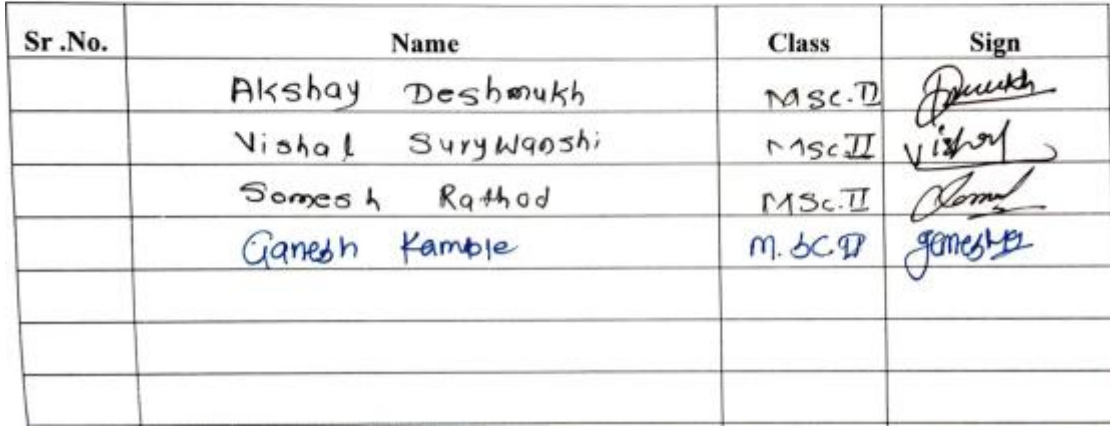 Sr .No. Name Class Sign
Akshay Deshmukh MSc.II
Vishal Surywanshi MSc.II Vishal
Somesh Rathod MSc.II
Ganesh Kamble M.SC.II